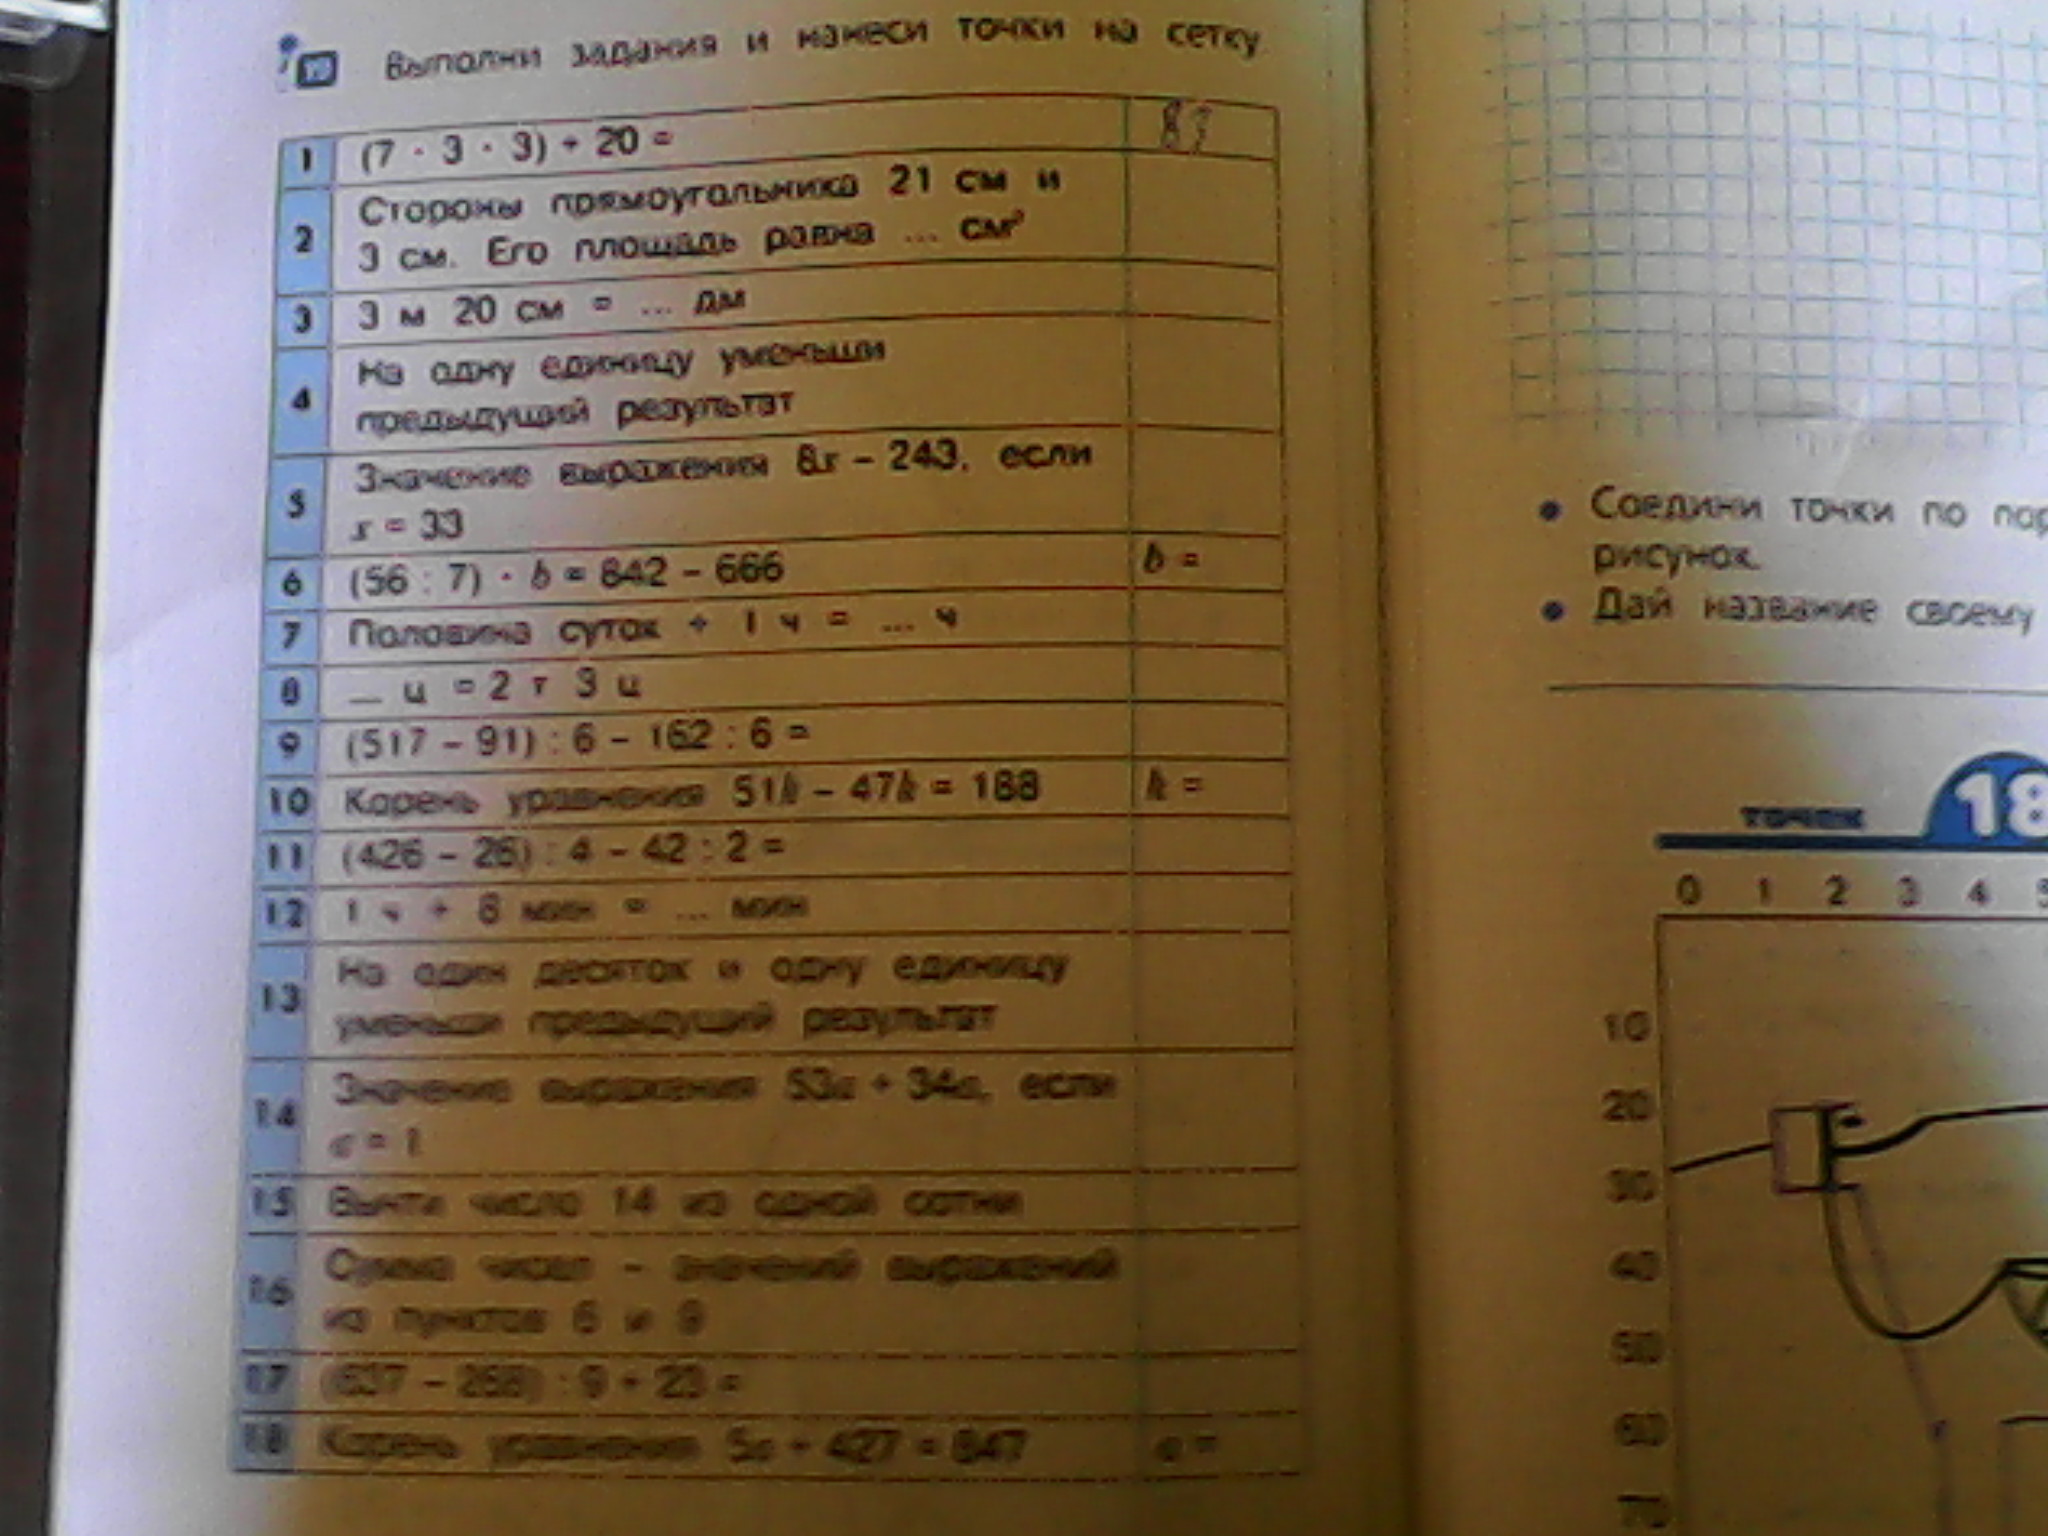 Выполни задания и нанеси точки на сетку
1 (7 · 3 · 3) + 20 = 83
2 Стороны прямоугольника 21 см и
3 см. Его площадь равна ... см²
3 3 м 20 см = ... дм
4 На одну единицу уменьши
предыдущий результат
5 Значение выражения 8x – 243, если
x = 33
6 (56 : 7) · b = 842 – 666 b =
7 Половина суток + 1 ч = ... ч
8 ... ц = 2 т 3 ц
9 (517 – 91) : 6 – 162 : 6 =
10 Корень уравнения 51k – 47k = 188 k =
11 (426 – 26) : 4 – 42 : 2 =
12 1 ч + 8 мин = ... мин
13 На один десяток и одну единицу
уменьши предыдущий результат
14 Значение выражения 53a + 34a, если
a = 1
15 Вычти число 14 из одной сотни
16 Сумма чисел – значений выражений
из пунктов 6 и 9
17 (637 – 268) : 9 + 23 =
18 Корень уравнения 5a + 427 = 847 a =
• Соедини точки по
рисунок.
• Дай название своему
точек 18
0 1 2 3 4 5
10
20
30
40
50
60
70